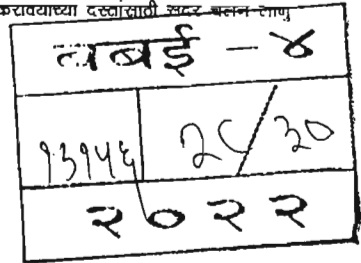 करावयाच्या दस्तांसाठी सदर चलन लागु
बबई - ४
१३१५६ २८/३०
२०२२